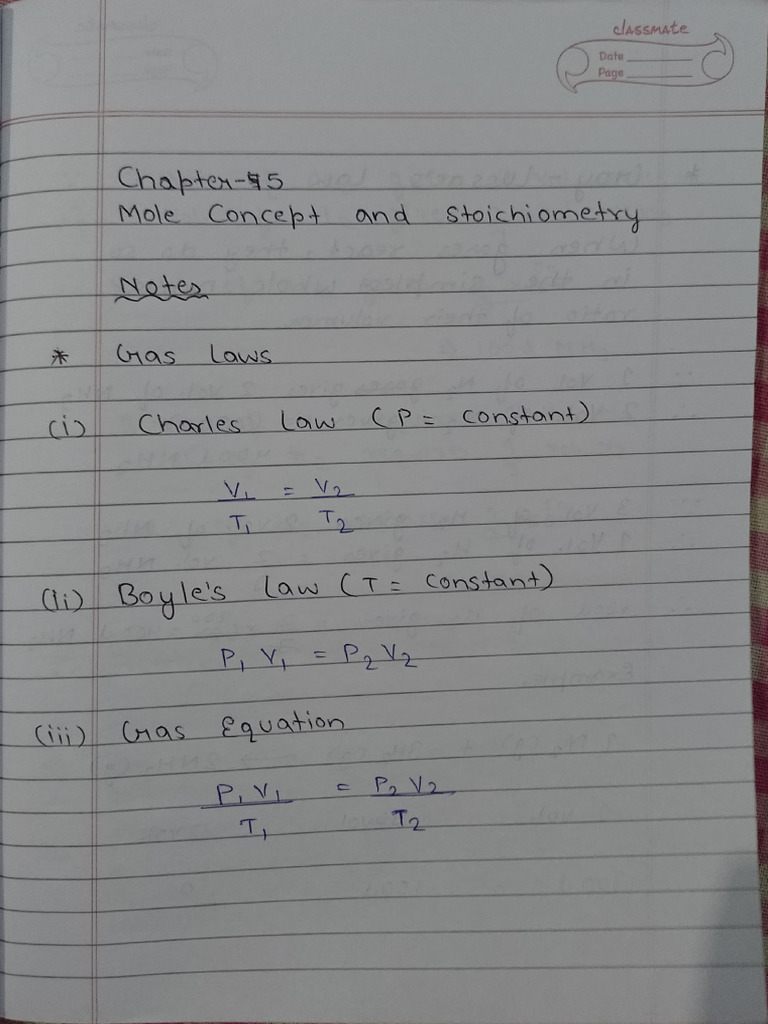 classmate
Date
Page
Chapter-5
Mole Concept and Stoichiometry
Notes
* Gas Laws
(i) Charles Law (P = constant)
V₁/T₁ = V₂/T₂
(ii) Boyle's Law (T = constant)
P₁ V₁ = P₂ V₂
(iii) Gas Equation
P₁ V₁/T₁ = P₂ V₂/T₂